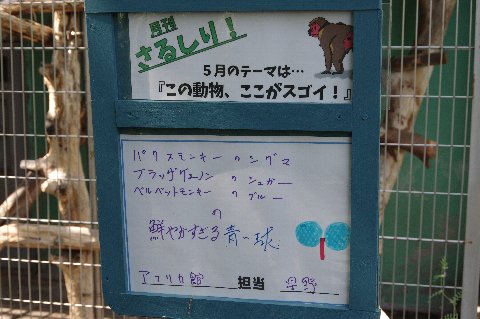 月刊
さるしり！
5月のテーマは…
『この動物、ここがスゴイ！』
パタスモンキー のシグマ
ブラッザグェノン のシュガー
ベルベットモンキー のブルー
の
鮮やかすぎる青い球
アフリカ館 担当 早野